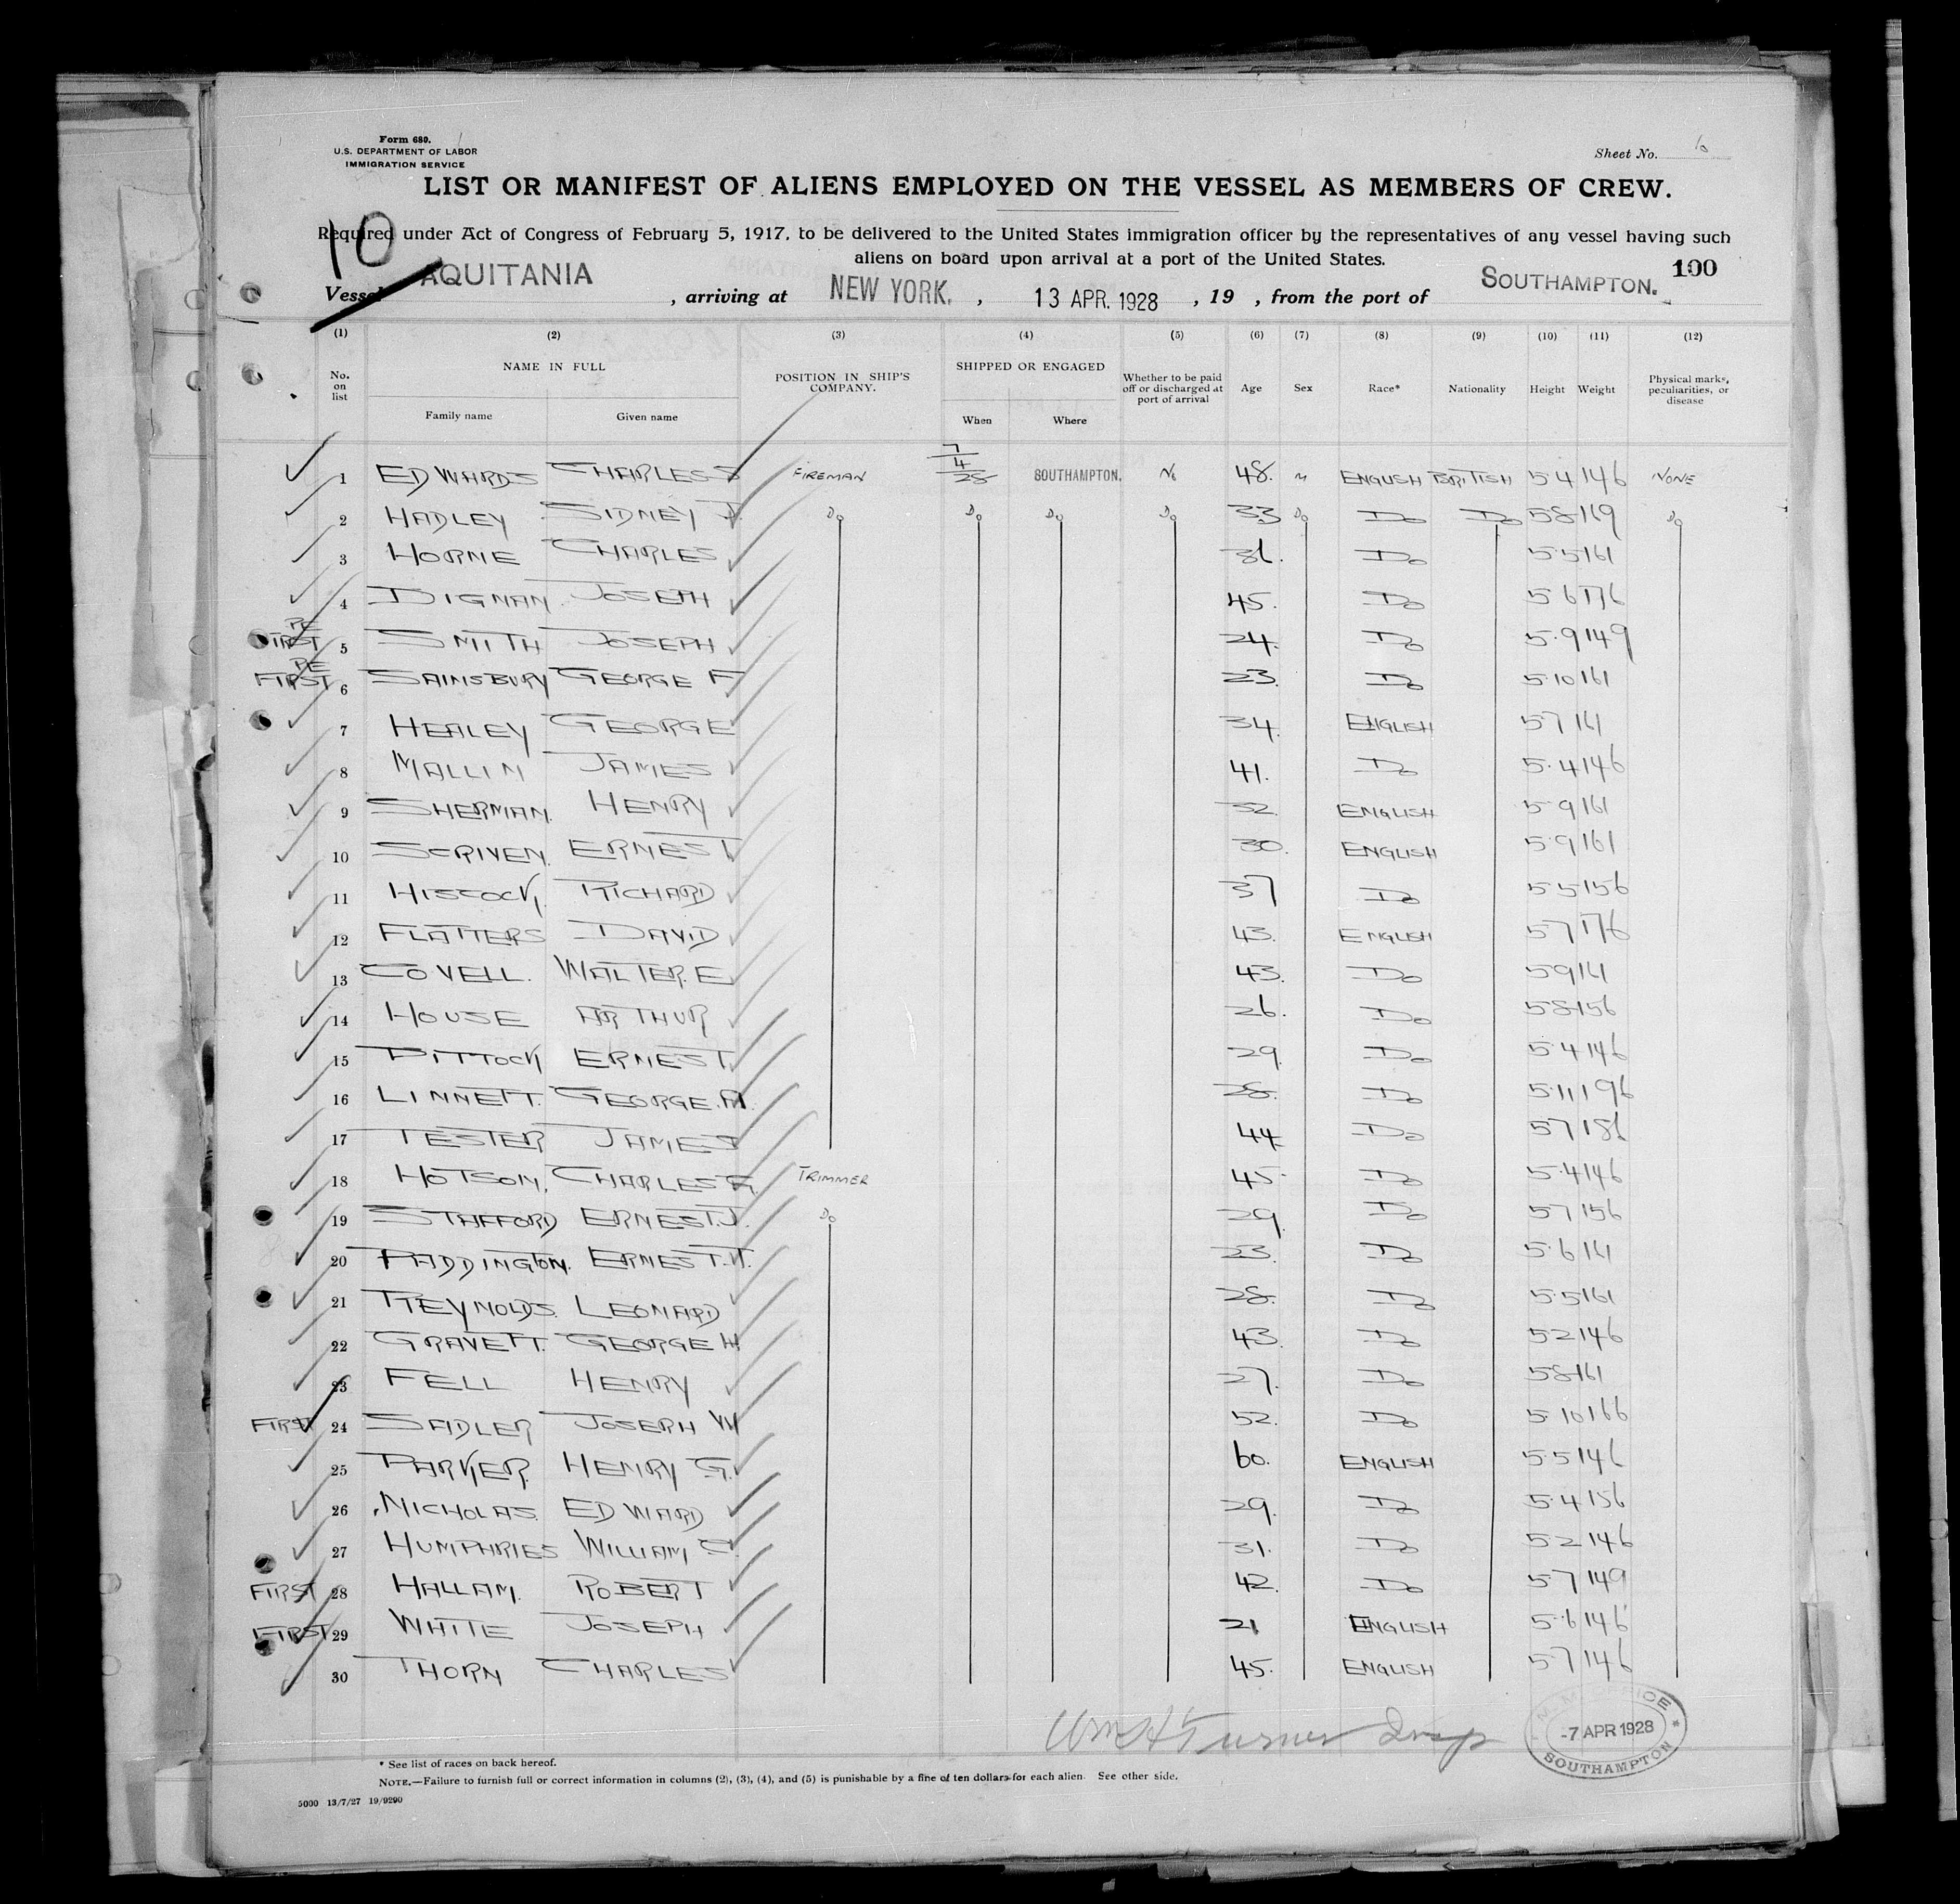 Form 680.
U.S. DEPARTMENT OF LABOR
IMMIGRATION SERVICE
Sheet No.
LIST OR MANIFEST OF ALIENS EMPLOYED ON THE VESSEL AS MEMBERS OF CREW.
10
Required under Act of Congress of February 5, 1917, to be delivered to the United States immigration officer by the representatives of any vessel having such
aliens on board upon arrival at a port of the United States.
100
Vessel AQUITANIA , arriving at NEW YORK. , 13 APR. 1928 , 19 , from the port of SOUTHAMPTON.
(1) (2) (3) (4) (5) (6) (7) (8) (9) (10) (11) (12)
No. on list NAME IN FULL POSITION IN SHIP'S COMPANY. SHIPPED OR ENGAGED Whether to be paid off or discharged at port of arrival Age Sex Race* Nationality Height Weight Physical marks, peculiarities, or disease
Family name Given name When Where
1 EDWARDS CHARLES S FIREMAN 7/4/28 SOUTHAMPTON. No 48. M ENGLISH BRITISH 5 4 146 NONE
2 HADLEY SIDNEY J. Do Do Do Do 33 Do Do Do 5 8 169 Do
3 HORNE CHARLES 36. Do 5.5 161
4 DIGNAM JOSEPH 45. Do 5 6 176
PE FIRST 5 SMITH JOSEPH 24. Do 5.9 149
PE FIRST 6 SAINSBURY GEORGE F 23. Do 5 10 161
7 HEALEY GEORGE 34. ENGLISH 5 7 161
8 MALLIN JAMES 41. Do 5.4 146
9 SHERMAN. HENRY 32. ENGLISH 5 9 161
10 SCRIVEN. ERNEST. 30. ENGLISH 5 9 161
11 HISCOCK. RICHARD 37 Do 5 5 156
12 FLATTERS DAVID 43. ENGLISH 5 7 176
13 COVELL. WALTER. E 43. Do 5 9 161
14 HOUSE ARTHUR 26. Do 5 8 156
15 PITTOCK ERNEST. 29. Do 5.4 146
16 LINNETT. GEORGE. A. 28. Do 5.11 196
17 TESTER JAMES 44. Do 5 7 186
18 HOTSON. CHARLES G. TRIMMER 45. Do 5.4 146
19 STAFFORD ERNEST. J. Do 29. Do 5 7 156
20 PADDINGTON. ERNEST. W. 23. Do 5.6 161
21 REYNOLDS. LEONARD 28. Do 5.5 161
22 GRAVETT. GEORGE H. 43. Do 5 2 146
23 FELL HENRY 27. Do 5 8 161
FIRST 24 SADLER JOSEPH W 52. Do 5.10 166
25 PARKER. HENRY G. 60. ENGLISH 5.5 146
26 NICHOLAS. EDWARD 29. Do 5.4 156
27 HUMPHRIES WILLIAM C. 31. Do 5 2 146
FIRST 28 HALLAM. ROBERT 42. Do 5.7 149
FIRST 29 WHITE JOSEPH 21 ENGLISH 5.6 146
30 THORN CHARLES 45. ENGLISH 5.7 146
Wm H Turner Insp
-7 APR 1928
SOUTHAMPTON
* See list of races on back hereof.
NOTE.—Failure to furnish full or correct information in columns (2), (3), (4), and (5) is punishable by a fine of ten dollars for each alien. See other side.
5000 13/7/27 19/9290